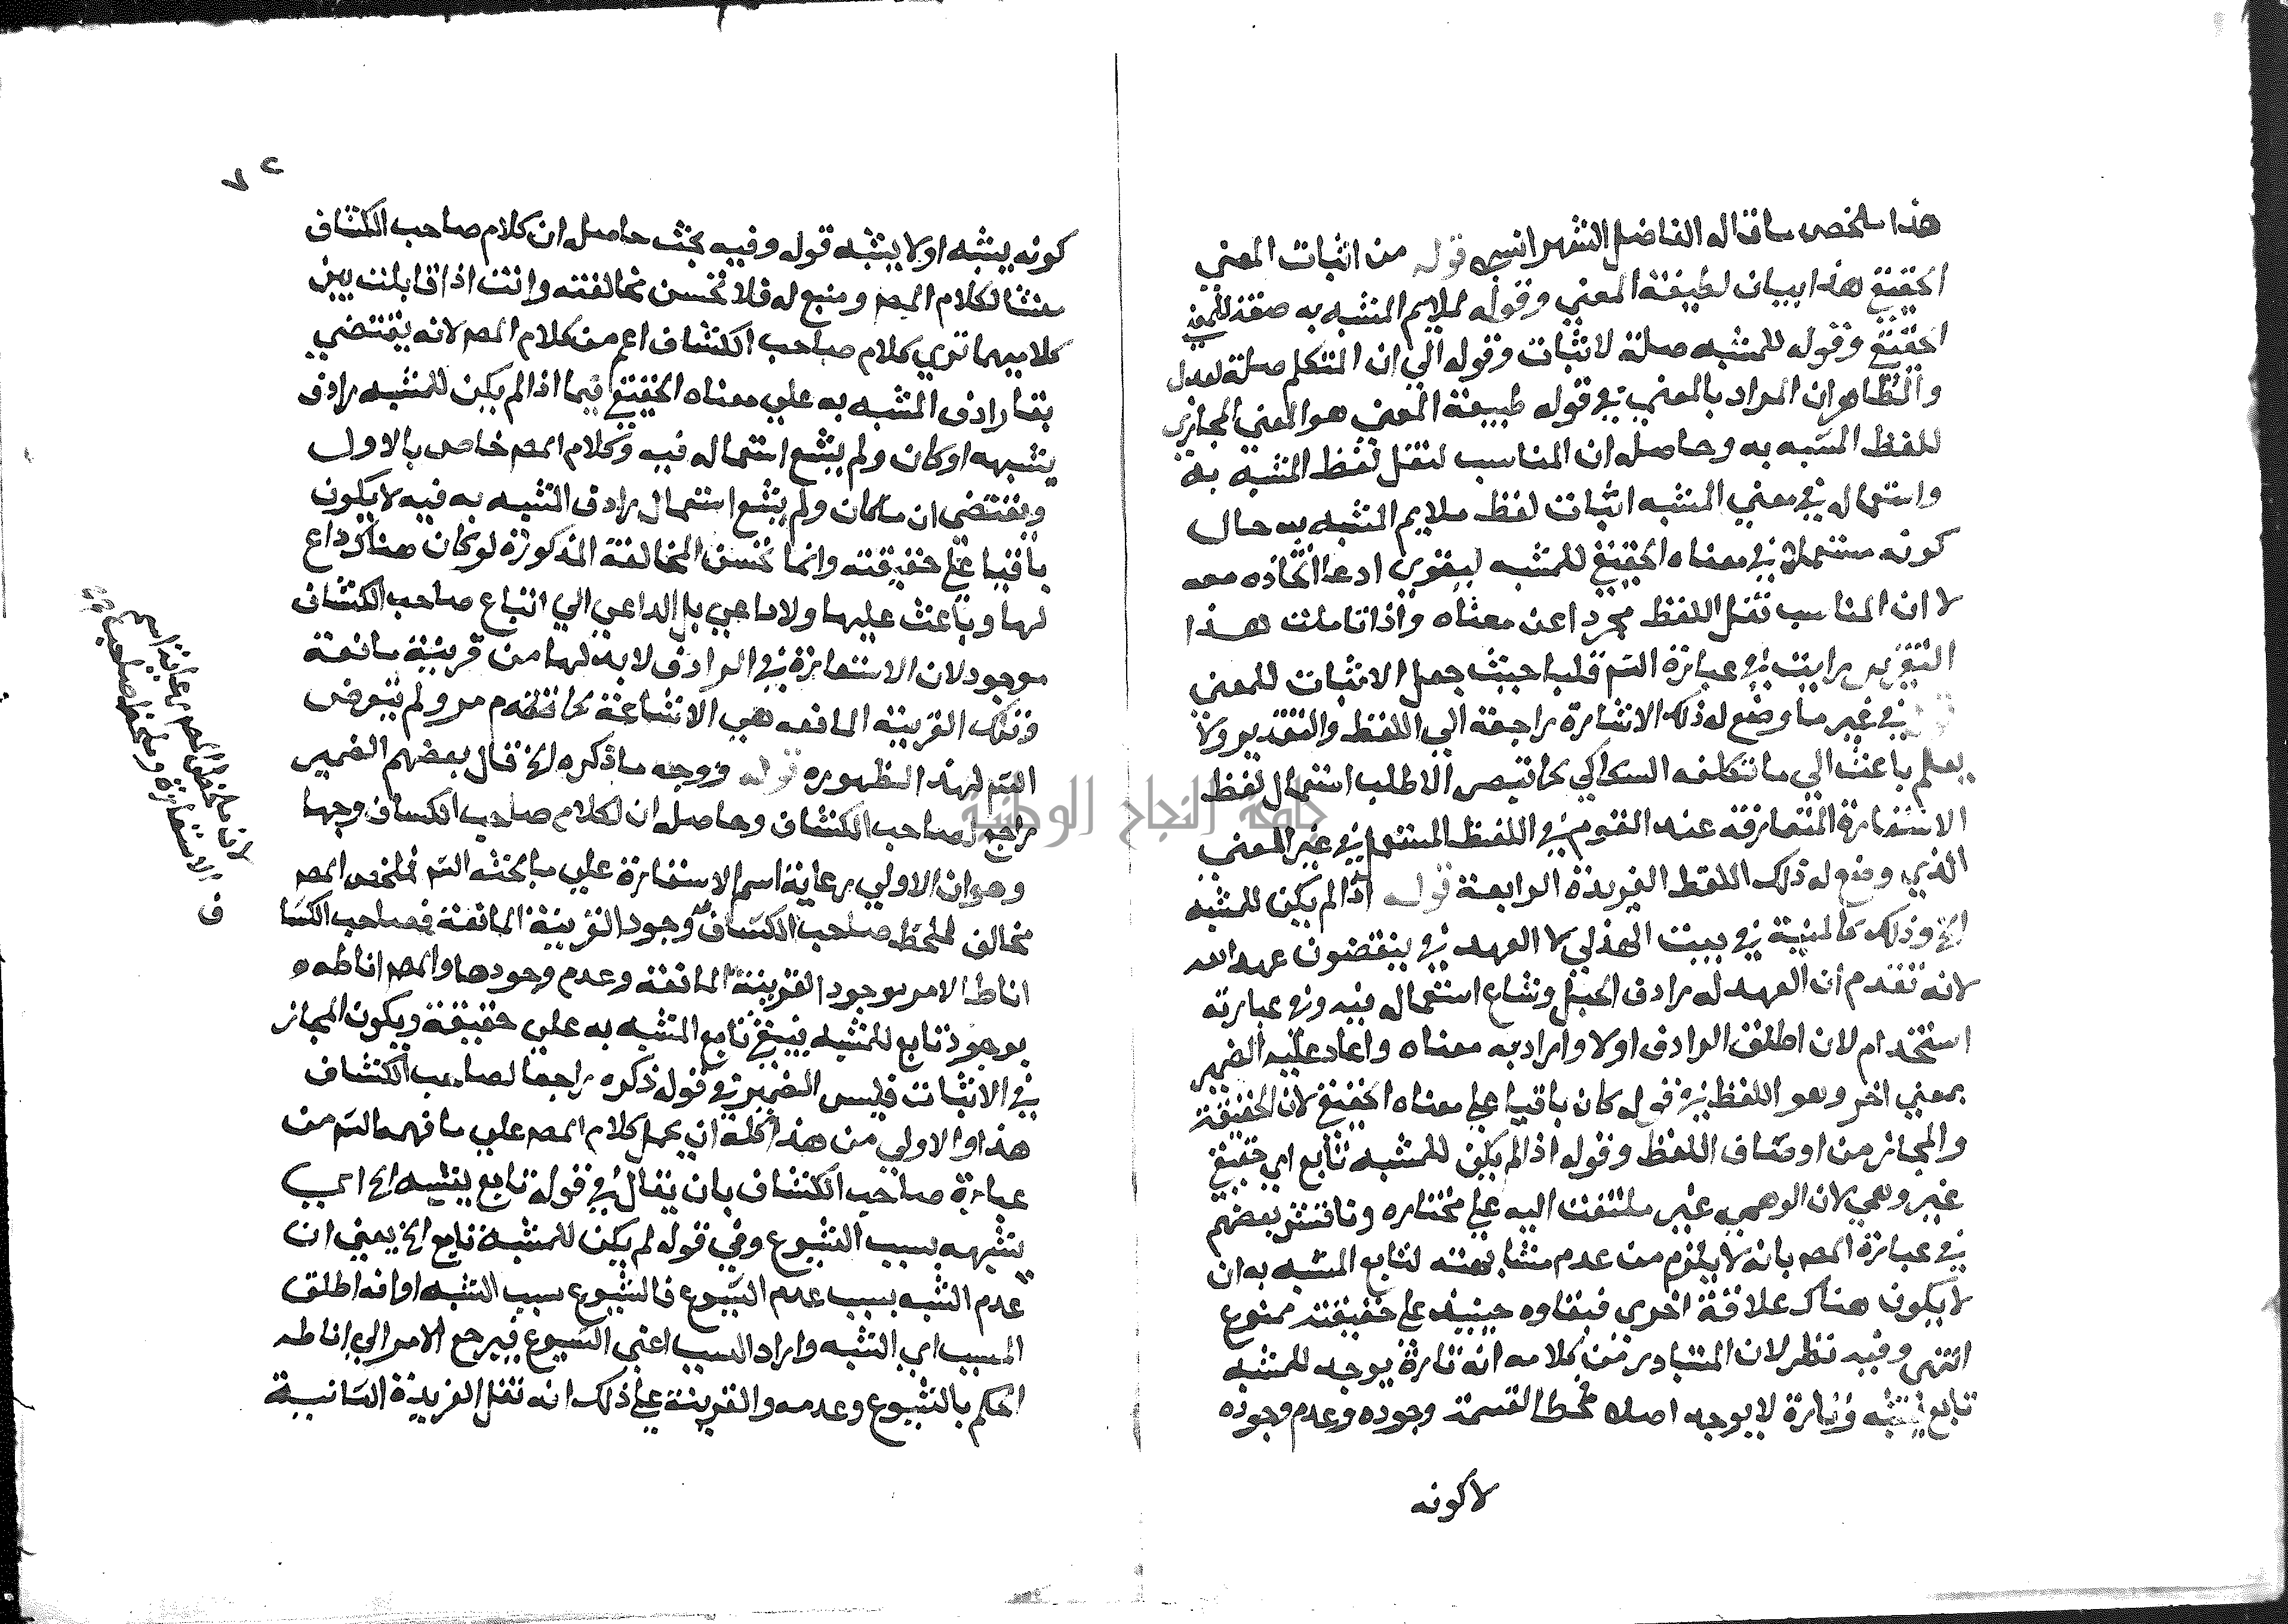 هذا ملخص ما قاله الفاضل الشهرانسي قوله من اثبات المعني
الحقيقي هذا بيان لطبيعة المعني وقوله لملايم المشبه به صفة للمعني
الحقيقي وقوله للمشبه صلة لاثبات وقوله الي ان المتكلم صلة لعدل
والظاهر ان المراد بالمعني في قوله طبيعة المعني هو المعني المجازي
للفظ المشبه به وحاصله ان المناسب لنقل لفظ المشبه به
واستعماله في معني المشبه اثبات لفظ ملايم المشبه به حال
كونه مستعملا في معناه الحقيقي للمشبه ليقوي ادعا اتحاده معه
لا ان المناسب نقل اللفظ مجردا عن معناه واذا تاملت هذا
التقرير رايت في عبارة الشم قلبا حيث جعل الاثبات للمعني
في غير ما وضع له ذلك الاشارة راجعة الي اللفظ والتقدير ولا
يعلم باعث الي ما تكلفه السكاكي كما تبصر الا طلب استعمال لفظ
الاستعارة المتعارفة عند القوم في اللفظ المستعمل في غير المعني
الذي وضع له ذلك اللفظ الفريدة الرابعة قوله اذا لم يكن للمشبه
الخ وذلك كالمنية في بيت الهذلي لا العهد في ينقضون عهد الله
لانه تقدم ان العهد له مرادف الحبل وشاع استعماله فيه وفي عبارته
استخدام لان اطلق الرادف اولا واراد به معناه واعاد عليه الضمير
بمعني اخر وهو اللفظ في قوله كان باقيا علي معناه الحقيقي لان الحقيقة
والمجاز من اوصاف اللفظ وقوله اذا لم يكن للمشبه تابع اي حقيقي
غير وهمي لان الوهمي غير ملتفت اليه علي مختاره وناقش بعضهم
في عبارة المص بانه لا يلزم من عدم مشابهته لتابع المشبه به ان
لا يكون هناك علاقة اخري فبقاوه حينيذ علي حقيقته ممنوع
انتهي وفيه نظر لان المتبادر من كلامه انه تارة يوجد للمشبه
تابع يشبه وتارة لا يوجد اصلا فمحط القسمة وجوده وعدم وجوده
لا كونه
٧٢
كونه يشبه او لا يشبه قوله وفيه بحث حاصله ان كلام صاحب الكشاف
منشا لكلام المص ومنبع له فلا تحسن مخالفته وانت اذا قابلت بين
كلاميهما تري كلام صاحب الكشاف اعم من كلام المص لانه يقتضي
بقا رادف المشبه به علي معناه الحقيقي فيما اذا لم يكن للمشبه رادف
يشبهه او كان ولم يشع استعماله فيه وكلام المص خاص بالاول
ويقتضي ان ما كان ولم يشع استعمال رادف المشبه به فيه لا يكون
باقيا علي حقيقته وانما تحسن المخالفة المذكورة لو كان هناك داع
لها وباعث عليها ولا داعي بل الداعي الي اتباع صاحب الكشاف
موجود لان الاستعارة في الرادف لا بد لها من قرينة مانعة
وتلك القرينة المانعه هي الاشاعة كما تقدم مر ولم يتعرض
الشم لهذا لظهوره قوله ووجه ما ذكره الخ قال بعضهم الضمير
راجع لصاحب الكشاف وحاصله ان لكلام صاحب الكشاف وجها
وهو ان الاولي رعاية اسم الاستعارة علي ما بحثه الشم فملخص المص
مخالف لملحظ صاحب الكشاف وجود القرينة المانعة فصاحب الكشا
اناط الامر بوجود القرينة المانعة وعدم وجودها والمص اناطه
بوجود تابع للمشبه فيبقي تابع المشبه به علي حقيقة ويكون المجاز
في الاثبات فليس الضمير في قوله ذكره راجعا لصاحب الكشاف
هذا والاولي من هذا كله ان يحمل كلام المص علي ما فهمه الشم من
عبارة صاحب الكشاف بان يقال في قوله تابع يشبه الخ اي
يشبهه بسبب الشيوع وفي قوله لم يكن للمشبه تابع الخ يعني ان
عدم الشبه بسبب عدم الشيوع فالشيوع سبب الشبه او انه اطلق
المسبب اي الشبه واراد السبب اعني الشيوع فيرجع الامر الي اناطه
الحكم بالشيوع وعدمه والقرينة علي ذلك انه نقل الفريدة الثانية
لان ملحظ المص رعاية اسم
الاستعارة وملحظ صاحب
ف
جامعة النجاح الوطنية